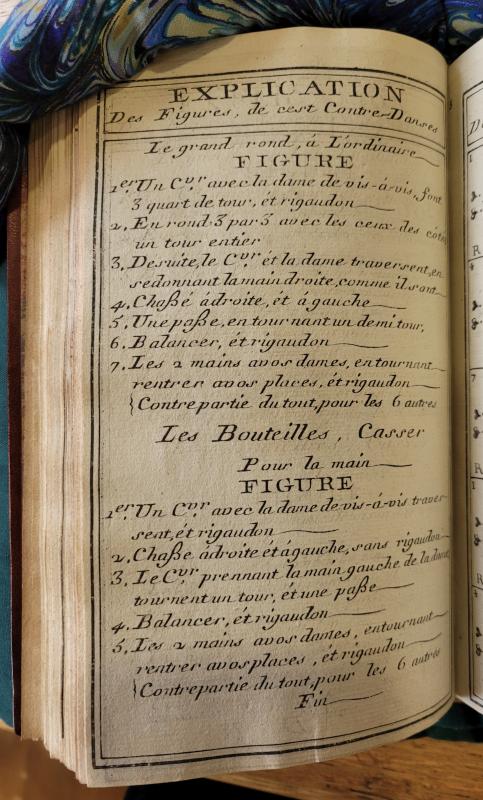 EXPLICATION
Des Figures, de cest Contre-Danses
Le grand rond, á L'ordinaire
FIGURE
1.er Un C.vr avec la dame de vis-á-vis, font
3 quart de tour, et rigaudon
2. En rond 3 par 3 avec les ceux des côtés
un tour entier
3. De suite, le C.vr ét la dame traversent, en
se donnant la main droite, comme il sont
4. Chaßé á droite, ét á gauche
5. Une paße, en tournant un demi tour,
6. Balancer, ét rigaudon
7. Les 2 mains avos dames, en tournant
rentrer avos places, ét rigaudon
Contre partie du tout, pour les 6 autres
Les Bouteilles, Casser
Pour la main
FIGURE
1.er Un C.vr avec la dame de vis-á-vis traver-
sent, ét rigaudon
2. Chaße á droite ét á gauche, sans rigaudon
3. Le C.vr prennant la main gauche de la dame
tournent un tour, ét une paße
4. Balancer, ét rigaudon
5. Les 2 mains avos dames, en tournant
rentrer avos places, ét rigaudon
Contre partie du tout, pour les 6 autres
Fin